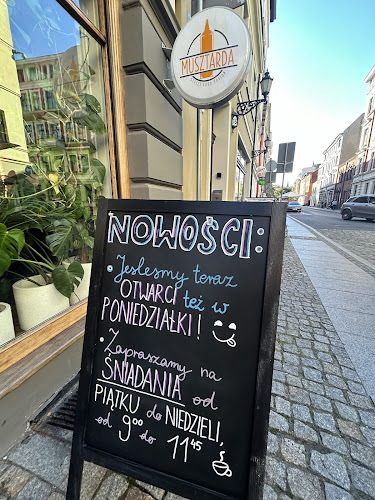 MUSZTARDA
NOWOŚCI:
• Jesteśmy teraz
OTWARCI też w
PONIEDZIAŁKI!
• Zapraszamy na
ŚNIADANIA od
PIĄTKU do NIEDZIELI,
od 9⁰⁰ do 11⁴⁵